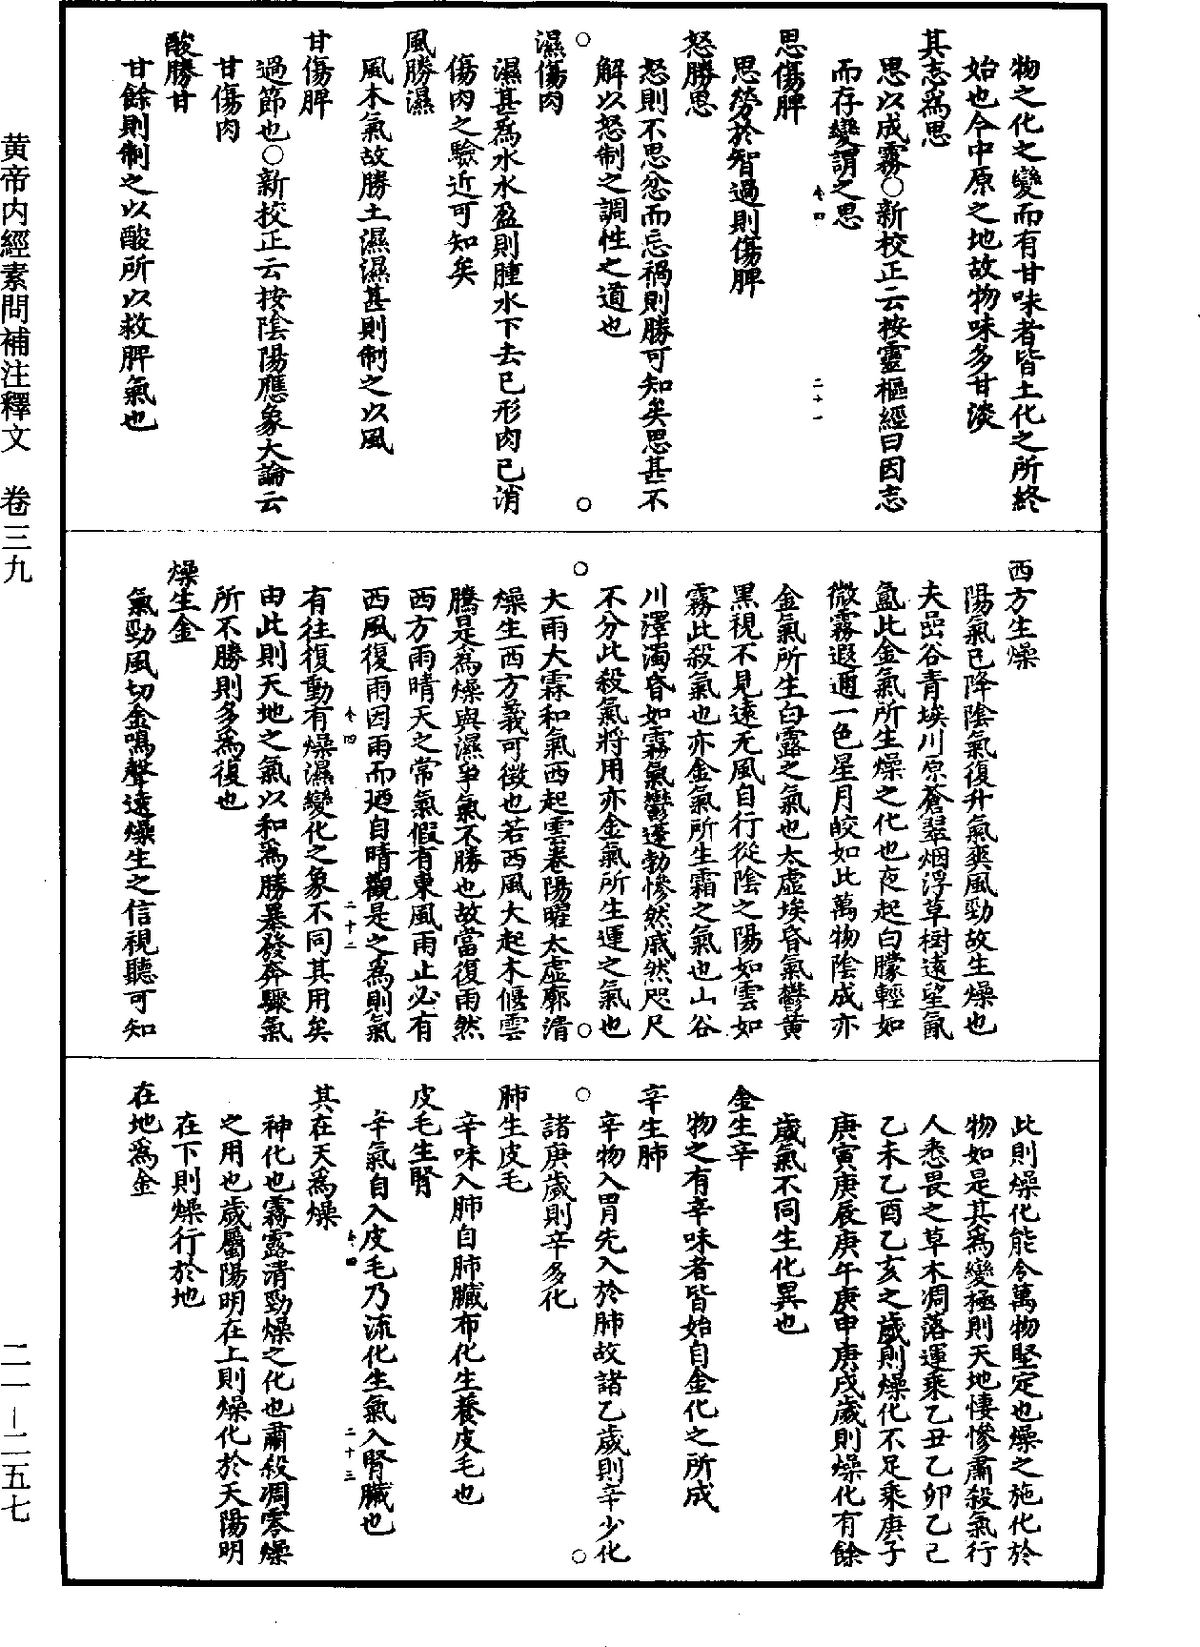 黄帝内經素問補注釋文　卷三九
二一—二五七
物之化之變而有甘味者皆土化之所終
始也今中原之地故物味多甘淡
其志爲思
思以成務○新校正云按靈樞經曰因志
而存變謂之思
思傷脾
思勞於智過則傷脾
怒勝思
怒則不思忿而忘禍則勝可知矣思甚不
解以怒制之調性之道也
濕傷肉
濕甚爲水水盈則腫水下去已形肉已消
傷肉之驗近可知矣
風勝濕
風木氣故勝土濕濕甚則制之以風
甘傷脾
過節也○新校正云按陰陽應象大論云
甘傷肉
酸勝甘
甘餘則制之以酸所以救脾氣也
西方生燥
陽氣已降陰氣復升氣爽風勁故生燥也
夫嵒谷青埃川原蒼翠烟浮草樹遠望氤
氳此金氣所生燥之化也夜起白朦輕如
微霧遐邇一色星月皎如此萬物陰成亦
金氣所生白露之氣也太虛埃昏氣鬱黄
黑視不見遠无風自行從陰之陽如雲如
霧此殺氣也亦金氣所生霜之氣也山谷
川澤濁昏如霧氣鬱蓬勃慘然戚然咫尺
不分此殺氣將用亦金氣所生運之氣也
大雨大霖和氣西起雲卷陽曜太虛廓清
燥生西方義可徵也若西風大起木偃雲
騰是爲燥與濕爭氣不勝也故當復雨然
西方雨晴天之常氣假有東風雨止必有
西風復雨因雨而乃自晴觀是之爲則氣
有往復動有燥濕變化之象不同其用矣
由此則天地之氣以和爲勝暴發奔驟氣
所不勝則多爲復也
燥生金
氣勁風切金鳴聲遠燥生之信視聽可知
此則燥化能令萬物堅定也燥之施化於
物如是其爲變極則天地悽慘肅殺氣行
人悉畏之草木凋落運乘乙丑乙卯乙己
乙未乙酉乙亥之歲則燥化不足乘庚子
庚寅庚辰庚午庚申庚戌歲則燥化有餘
歲氣不同生化異也
金生辛
物之有辛味者皆始自金化之所成
辛生肺
辛物入胃先入於肺故諸乙歲則辛少化
諸庚歲則辛多化
肺生皮毛
辛味入肺自肺臟布化生養皮毛也
皮毛生腎
辛氣自入皮毛乃流化生氣入腎臟也
其在天爲燥
神化也霧露清勁燥之化也肅殺凋零燥
之用也歲屬陽明在上則燥化於天陽明
在下則燥行於地
在地爲金